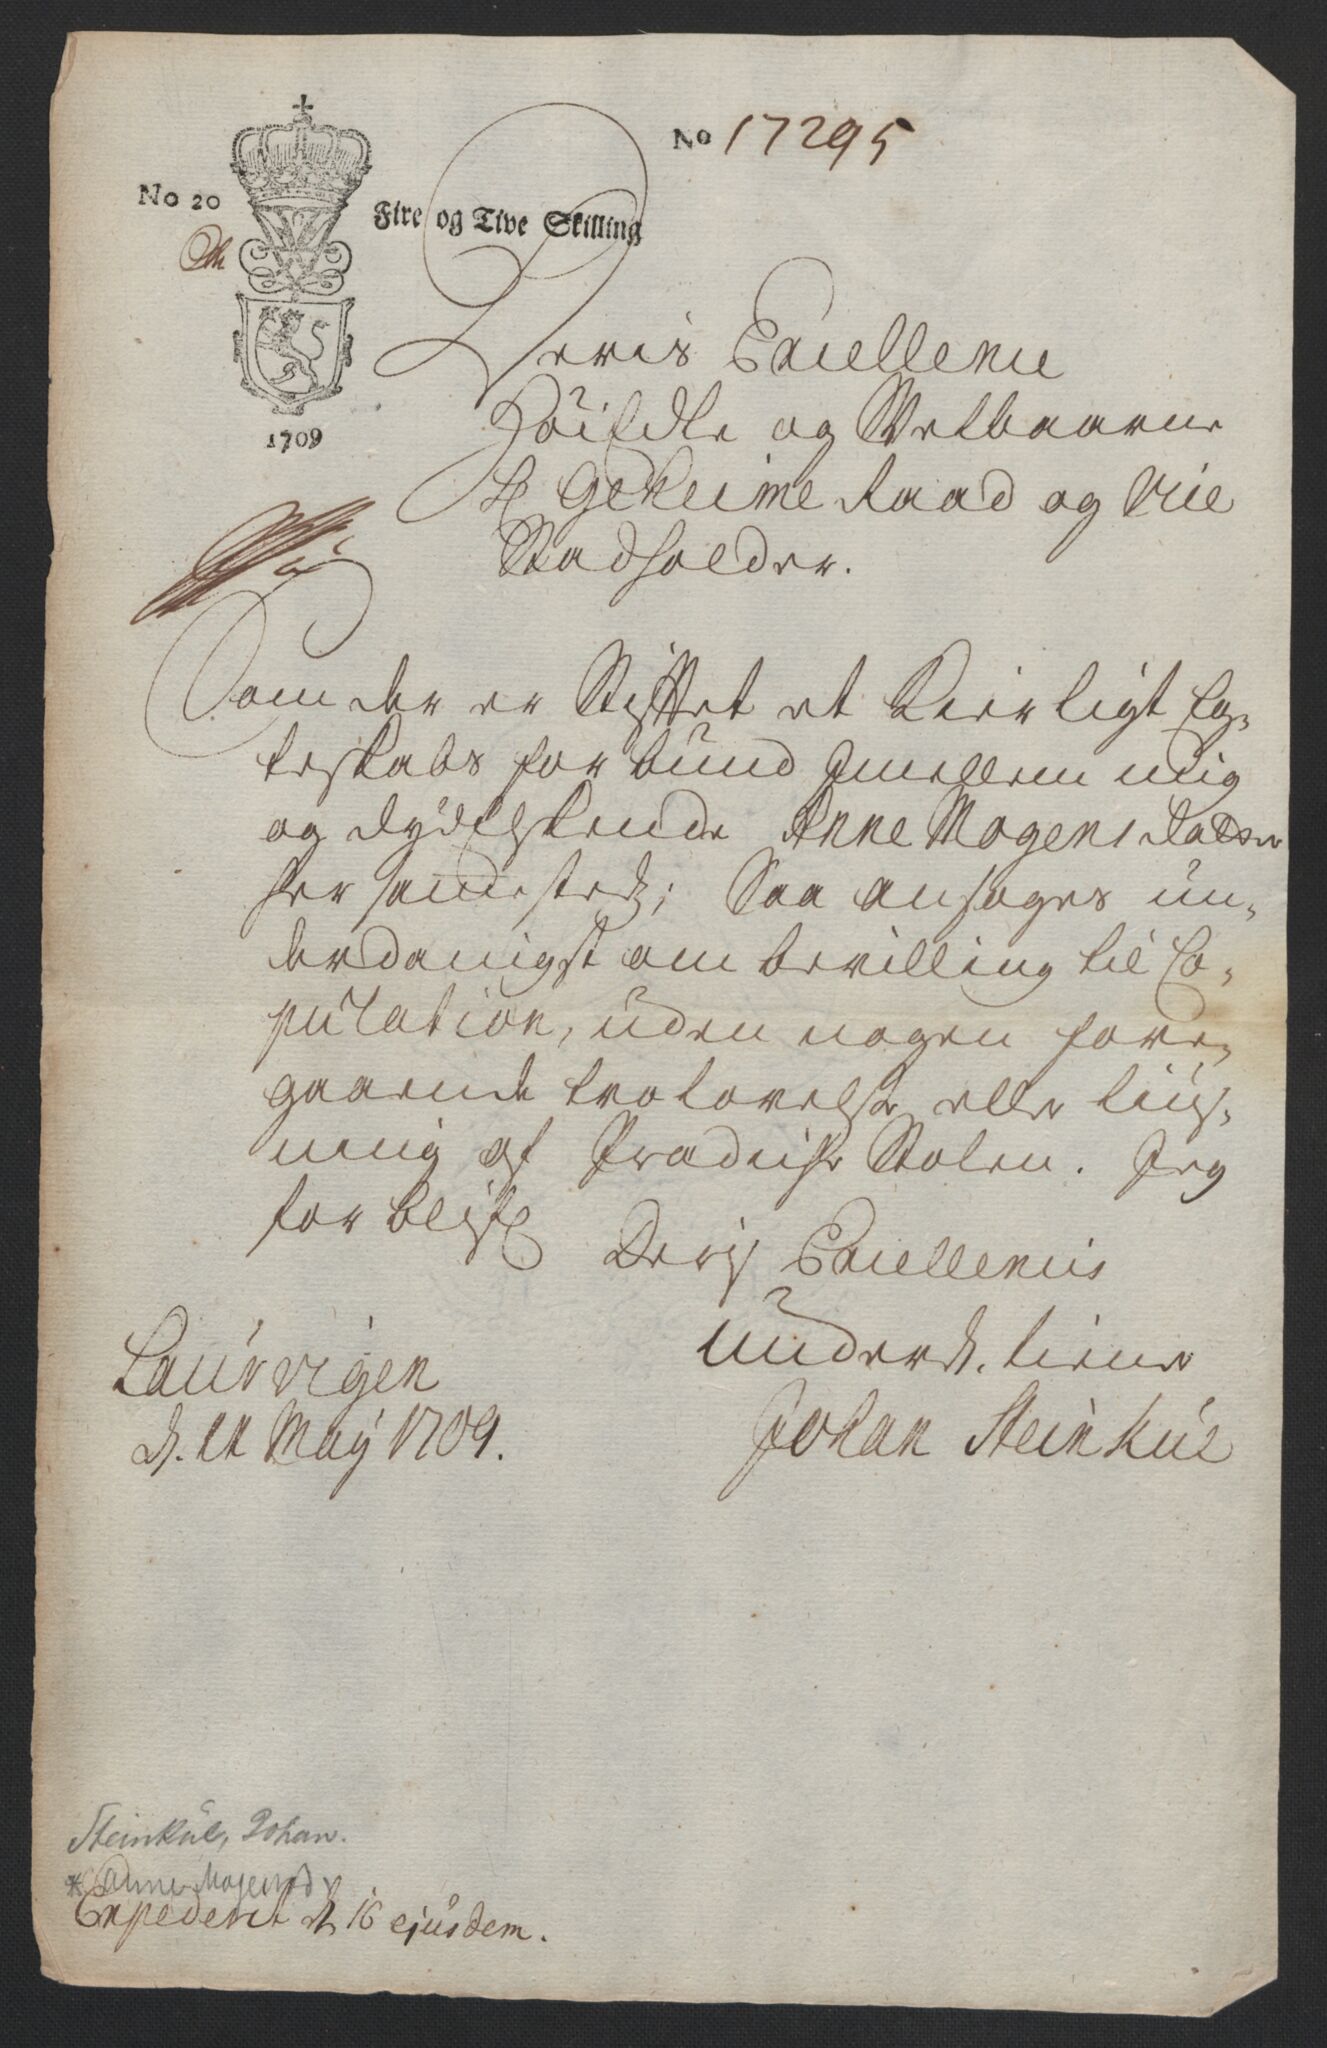 No 17295
No 20
Fire og Tive Skilling
1709
Deris Excellence
Höiædle og Velbaarne
H Geheime Raad og Vice
Stadholder.
Som der er Stifftet et Kierligt Eg-
teskabs forbund Jmellem mig
og dydelskende Anne Mogens datter
her sammested; Saa ansøges un-
derdanigst om bevilling til Co-
pulation, uden nogen fore-
gaaende trolovelse eller liüs-
ning af Prædicke Stolen. Jeg
forblifr
Deris Excellences
Underd. tiener
Johan Steinkül
Laurvigen
d. 11 May 1709.
Steinkül, Johan.
* Anne Mogensd
Expederet d 16 ejusdem.